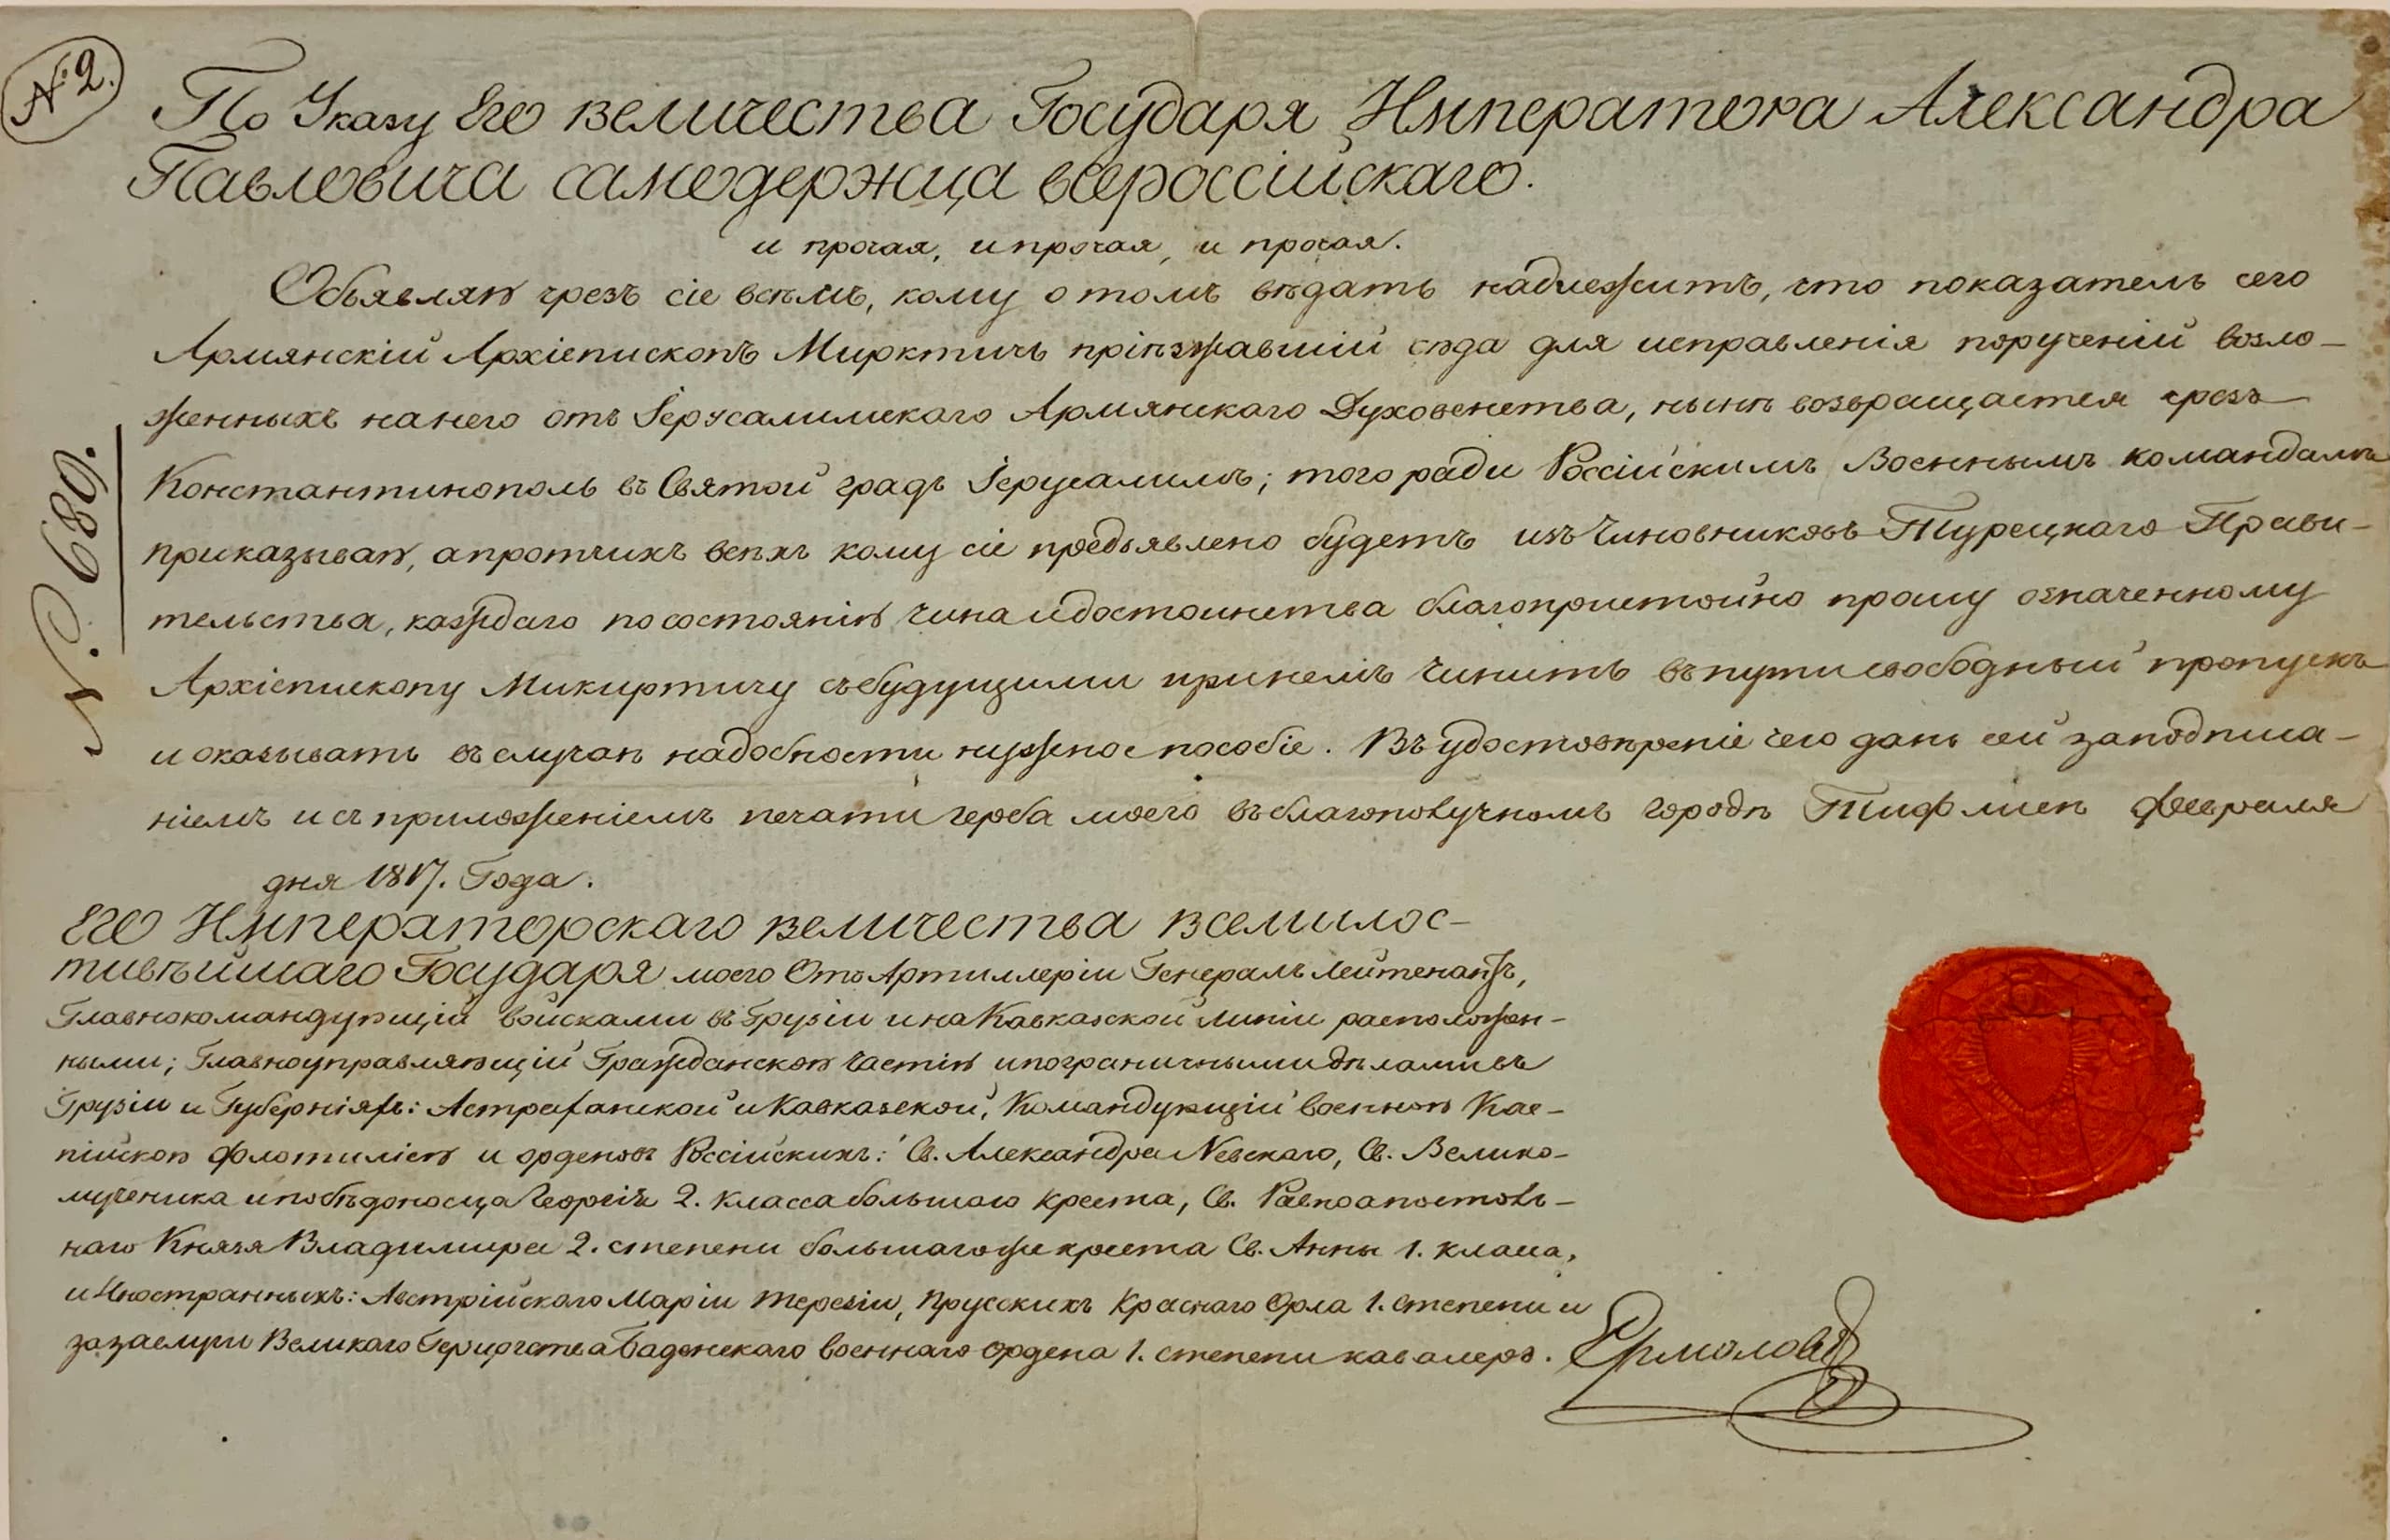 № 2.
По Указу Его величества Государя Императора Александра
Павловича самодержца всероссійскаго.
и прочая, и прочая, и прочая.
Объявляю чрезъ сіе всѣмъ, кому о томъ вѣдать надлежитъ, что показатель сего
Армянскій Архіепископъ Мирктичь пріѣзжавшій сюда для исправленія порученій возло-
женныхъ на него отъ Іерусалимскаго Армянскаго Духовенства, нынѣ возвращается чрезъ
Константинополь въ Святой градъ Іерусалимъ; того ради Россійскимъ Военнымъ командамъ
приказываю, а протчихъ всѣхъ кому сіе предъявлено будетъ изъ Чиновниковъ Турецкаго Прави-
тельства, каждаго по состоянію чина и достоинства благопристойно прошу означенному
Архіепископу Микиртичу съ будущими при немъ чинить въ пути свободный пропускъ
и оказывать въ случаѣ надобности нужное пособіе. Въ удостовѣреніе чего данъ сей за подписа-
ніемъ и съ приложеніемъ печати герба моего въ благополучномъ городѣ Тифлисѣ Февраля
дня 1817. Года.
Его Императорскаго величества всемилос-
тивѣйшаго Государя моего Отъ Артиллеріи Генералъ Лейтенантъ,
Главнокомандующій войсками въ Грузіи и на Кавказской линіи расположен-
ными; Главноуправляющій Гражданскою частію и пограничными дѣлами въ
Грузіи и Губерніяхъ: Астраханской и Кавказской, Командующій военною Кас-
пійскою флотиліею и орденовъ Россійскихъ: Св. Александра Невскаго, Св. Велико-
мученика и побѣдоносца Георгія 2. класса большаго креста, Св. Равноапостоль-
наго Князя Владимира 2. степени большаго же креста Св. Анны 1. класса,
и Иностранныхъ: Австрійскаго Маріи Терезіи, Прусскихъ Краснаго Орла 1. степени и
за заслуги Великаго Герцогства Баденскаго военнаго ордена 1. степени кавалеръ. Ермоловъ
№. 680.